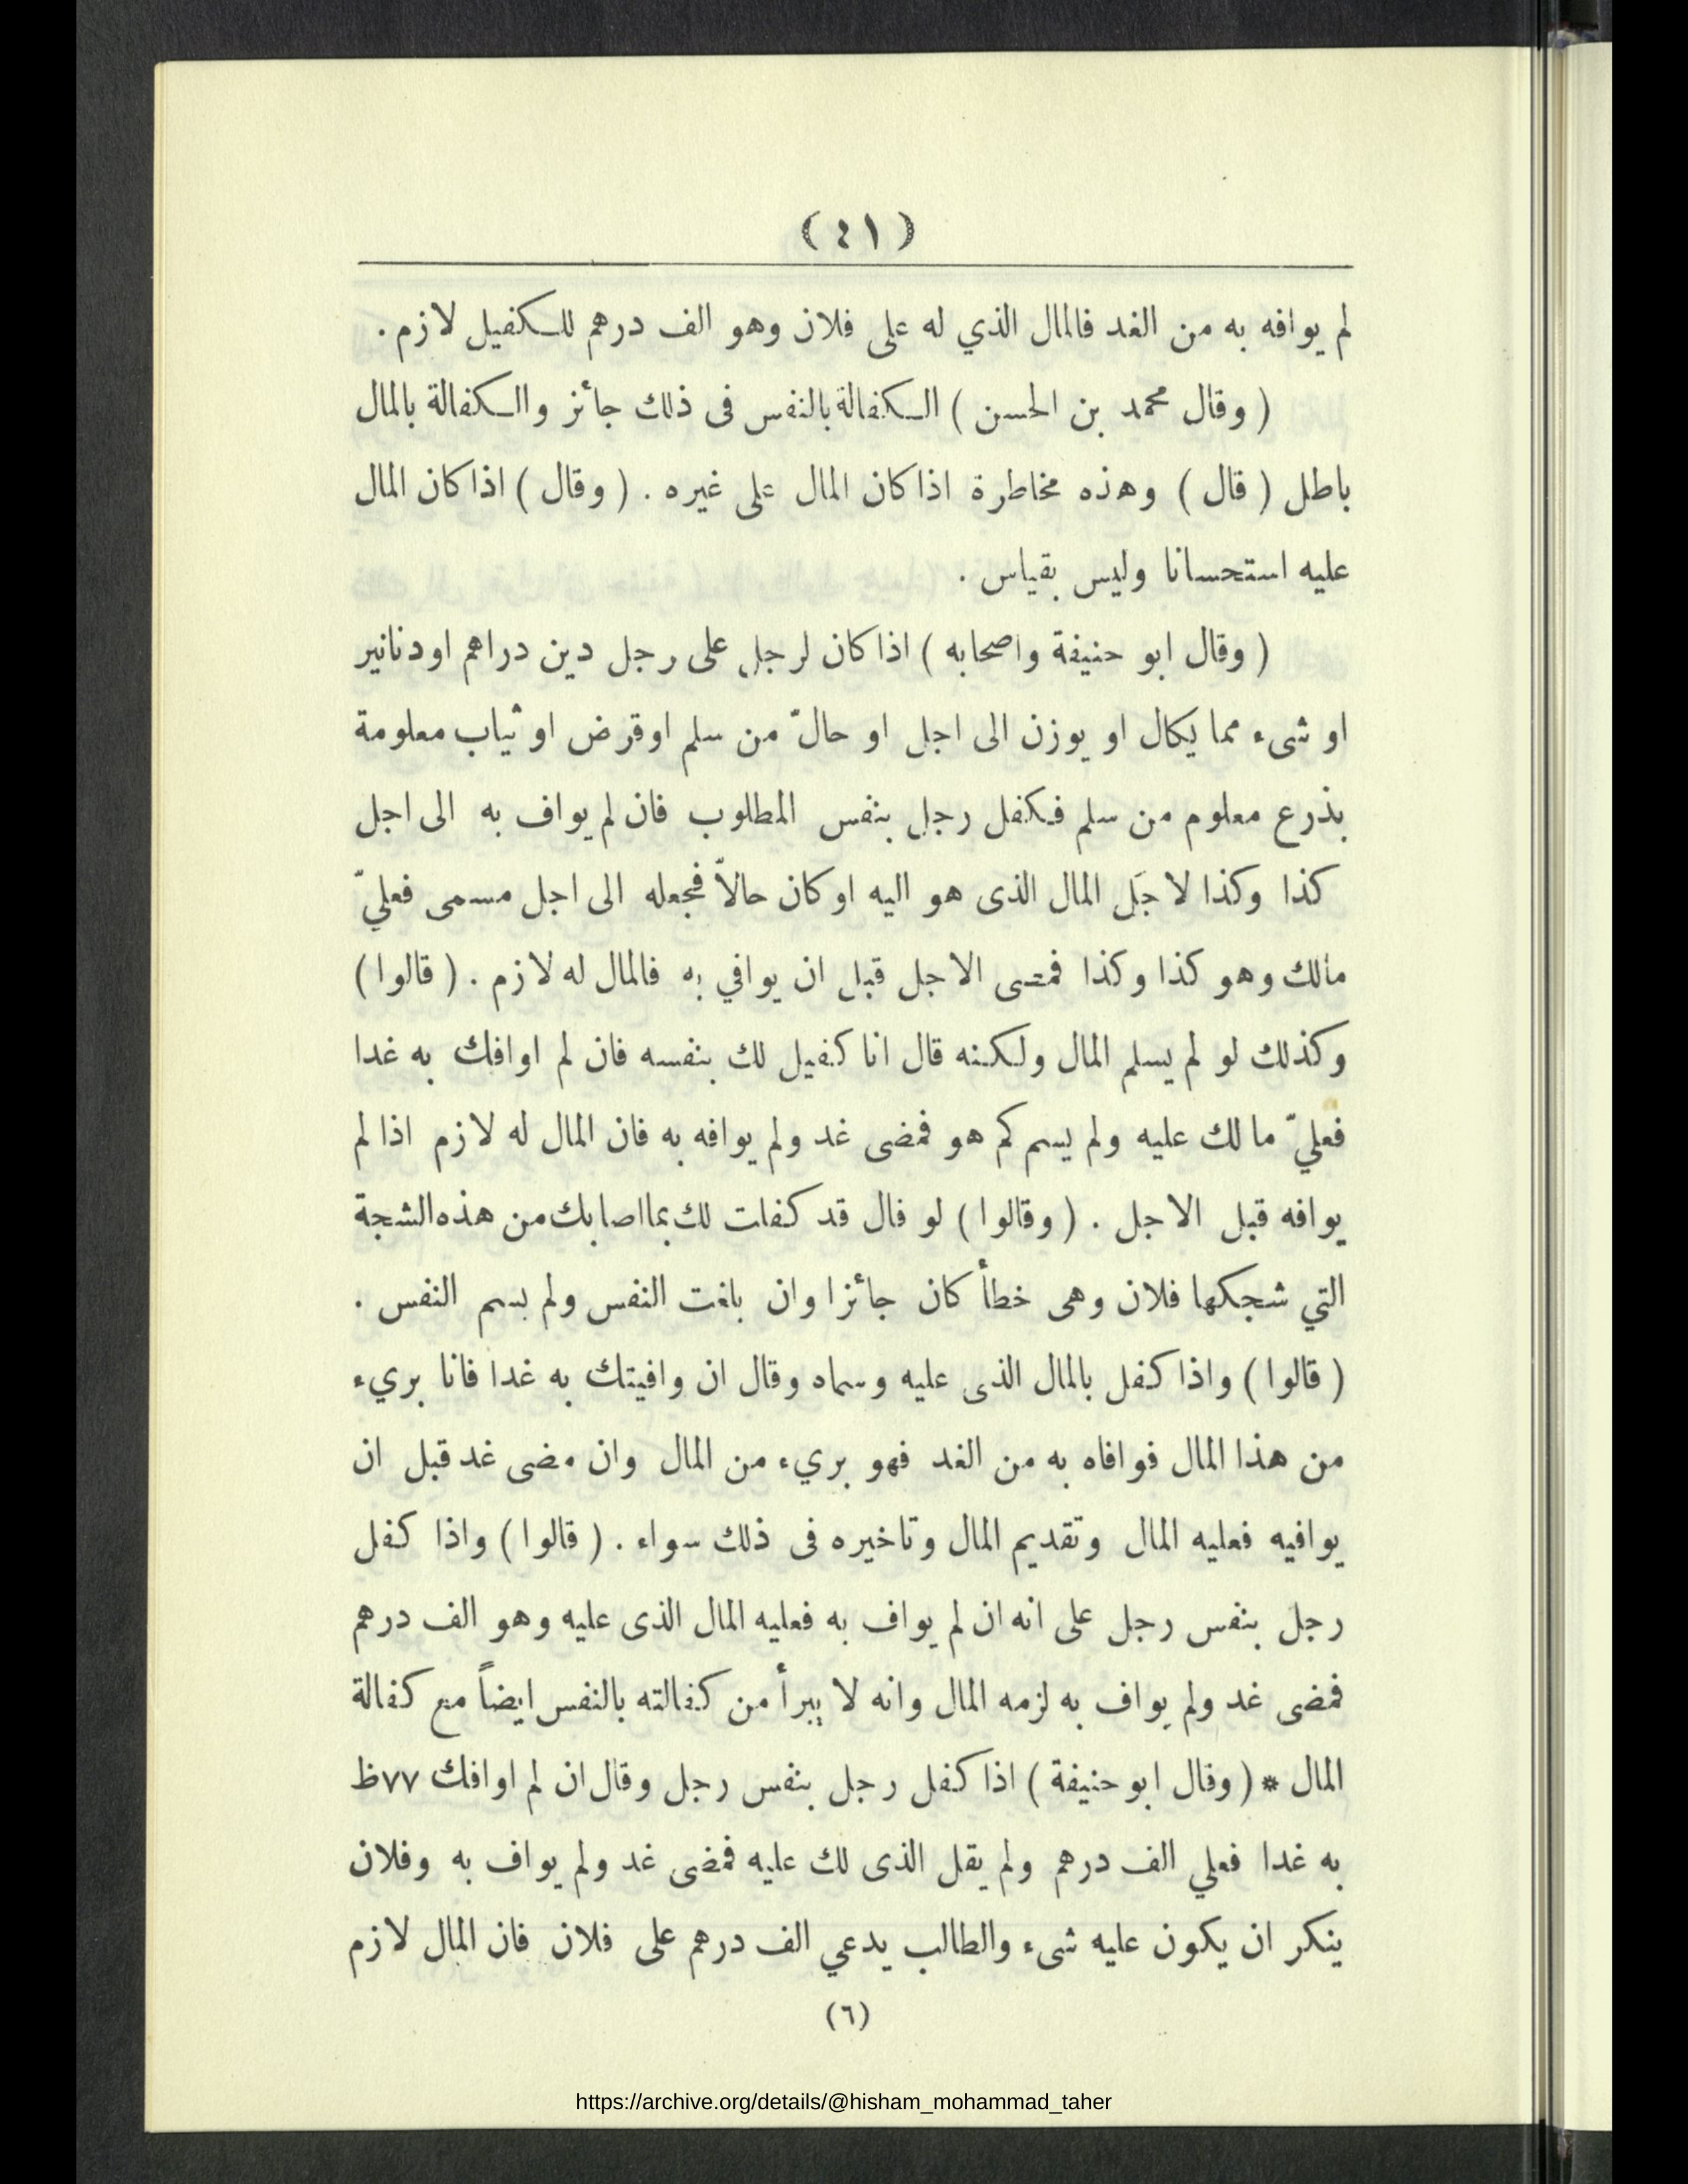 (٤١)
لم يوافه به من الغد فالمال الذي له على فلان وهو الف درهم للكفيل لازم.
( وقال محمد بن الحسن ) الكفالة بالنفس فى ذلك جائز والكفالة بالمال
باطل ( قال ) وهذه مخاطرة اذا كان المال على غيره . ( وقال ) اذا كان المال
عليه استحسانا وليس بقياس .
( وقال ابو حنيفة واصحابه ) اذا كان لرجل على رجل دين دراهم او دنانير
او شىء مما يكال او يوزن الى اجل او حالّ من سلم او قرض او ثياب معلومة
بذرع معلوم من سلم فكفل رجل بنفس المطلوب فان لم يواف به الى اجل
كذا وكذا لاجَل المال الذى هو اليه او كان حالاّ فجعله الى اجل مسمى فعليّ
مالك وهو كذا وكذا فمضى الاجل قبل ان يوافي به فالمال له لازم . ( قالوا )
وكذلك لو لم يسلم المال ولكنه قال انا كفيل لك بنفسه فان لم اوافك به غدا
فعليّ ما لك عليه ولم يسم كم هو فمضى غد ولم يوافه به فان المال له لازم اذا لم
يوافه قبل الاجل . ( وقالوا ) لو قال قد كفلت لك بما اصابك من هذه الشجة
التي شجكها فلان وهى خطأ كان جائزا وان بلغت النفس ولم يسم النفس .
( قالوا ) واذا كفل بالمال الذى عليه وسماه وقال ان وافيتك به غدا فانا بريء
من هذا المال فوافاه به من الغد فهو بريء من المال وان مضى غد قبل ان
يوافيه فعليه المال وتقديم المال وتاخيره فى ذلك سواء . ( قالوا ) واذا كفل
رجل بنفس رجل على انه ان لم يواف به فعليه المال الذى عليه وهو الف درهم
فمضى غد ولم يواف به لزمه المال وانه لا يبرأ من كفالته بالنفس ايضاً مع كفالة
المال * ( وقال ابو حنيفة ) اذا كفل رجل بنفس رجل وقال ان لم اوافك ٧٧ظ
به غدا فعلي الف درهم ولم يقل الذى لك عليه فمضى غد ولم يواف به وفلان
ينكر ان يكون عليه شىء والطالب يدعي الف درهم على فلان فان المال لازم
(٦)
https://archive.org/details/@hisham_mohammad_taher